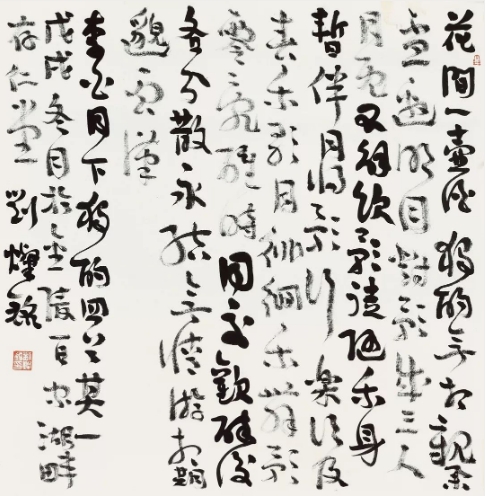 花間一壺酒獨酌無相親舉
盃邀明月對影成三人
月既不解飲影徒隨我身
暫伴月將影行樂須及
春我歌月徘徊我舞影
零亂醒時同交歡醉後
各分散永結無情遊相期
邈雲漢
李白月下獨酌四首其一
戊戌冬月於金陵百家湖畔
存仁堂 劉燦銘